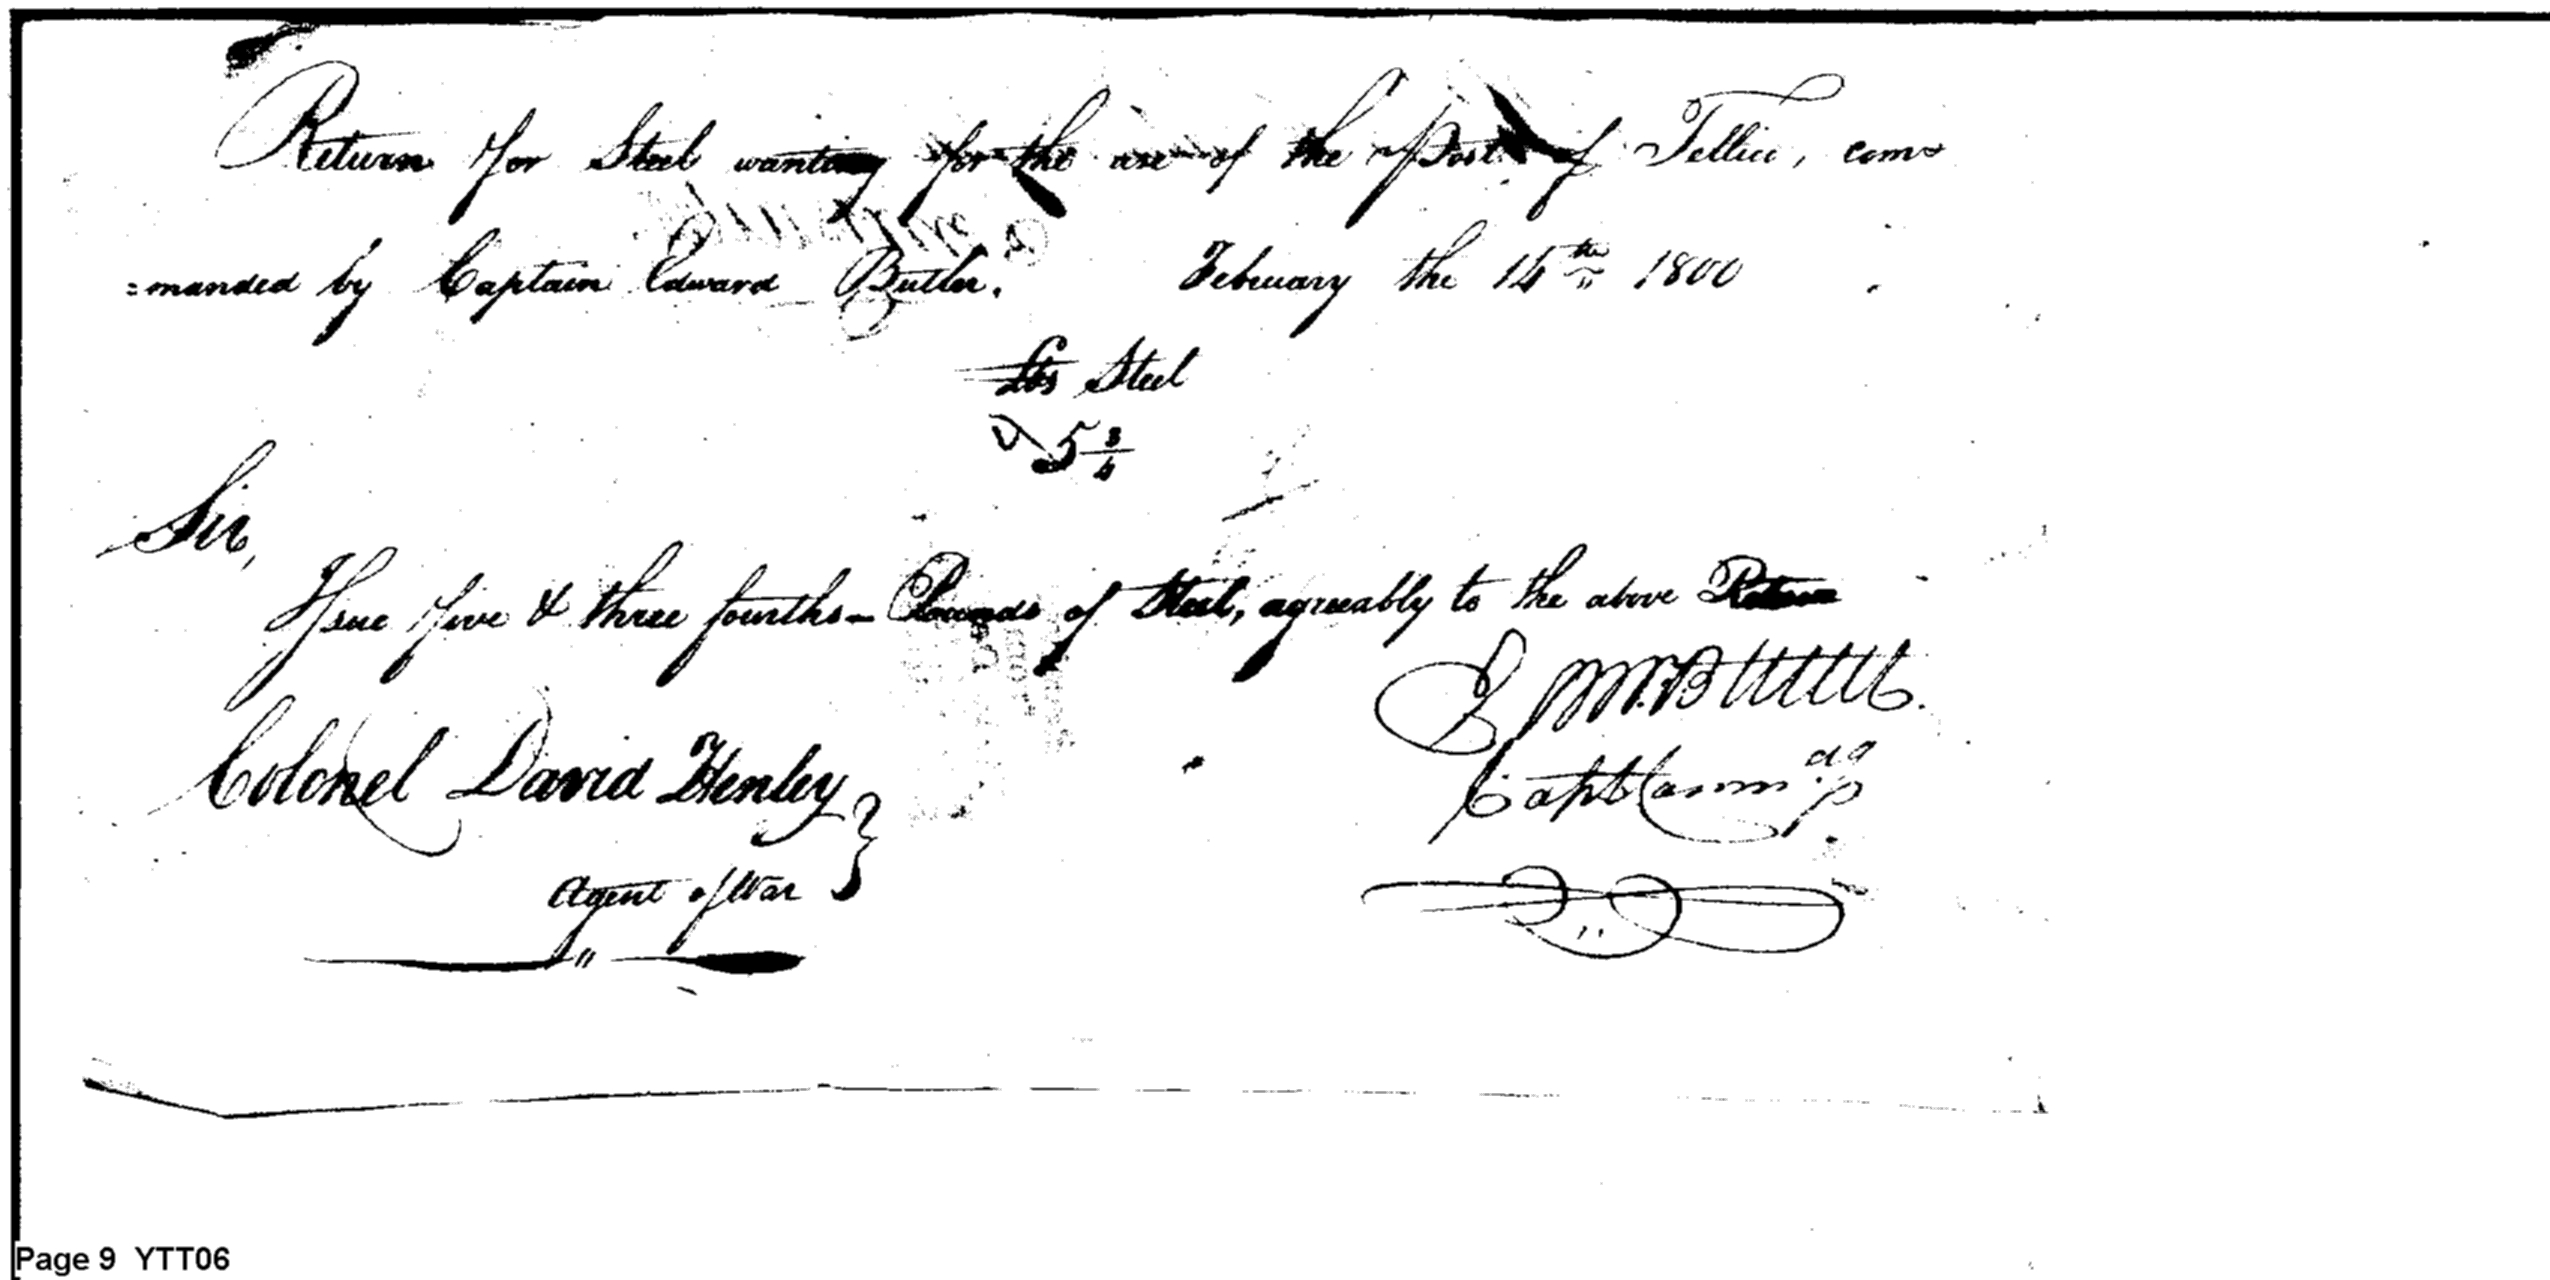 Return for Steel wanting for the use of the Post of Tellico, com=
=manded by Captain Edward Butler. February the 14th 1800
lbs Steel
5 3/4
Sir,
Issue five & three fourths - Pounds of Steel, agreeably to the above Return
Colonel David Henley
Agent of War
Butler.
Capt Comm dg
Page 9 YTT06